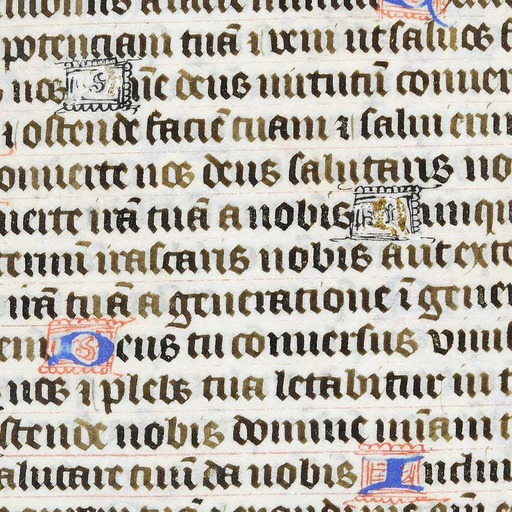 potenciam tuã ⁊ veni ut saluos
nos Dñe deus uirtutũ conuer
⁊ ostende faciẽ tuam ⁊ salui erim
onuerte nos deus salutaris no
uerte irã tuã a nobis Numqu
ternũ irascaris nobis aut exte
irã tuã a generatione ĩ gener
eni Deus tu conuersus viuif
nos ⁊ plebs tua letabitur in t
stende nobis domine miãm t
alutare tuũ da nobis Inclin